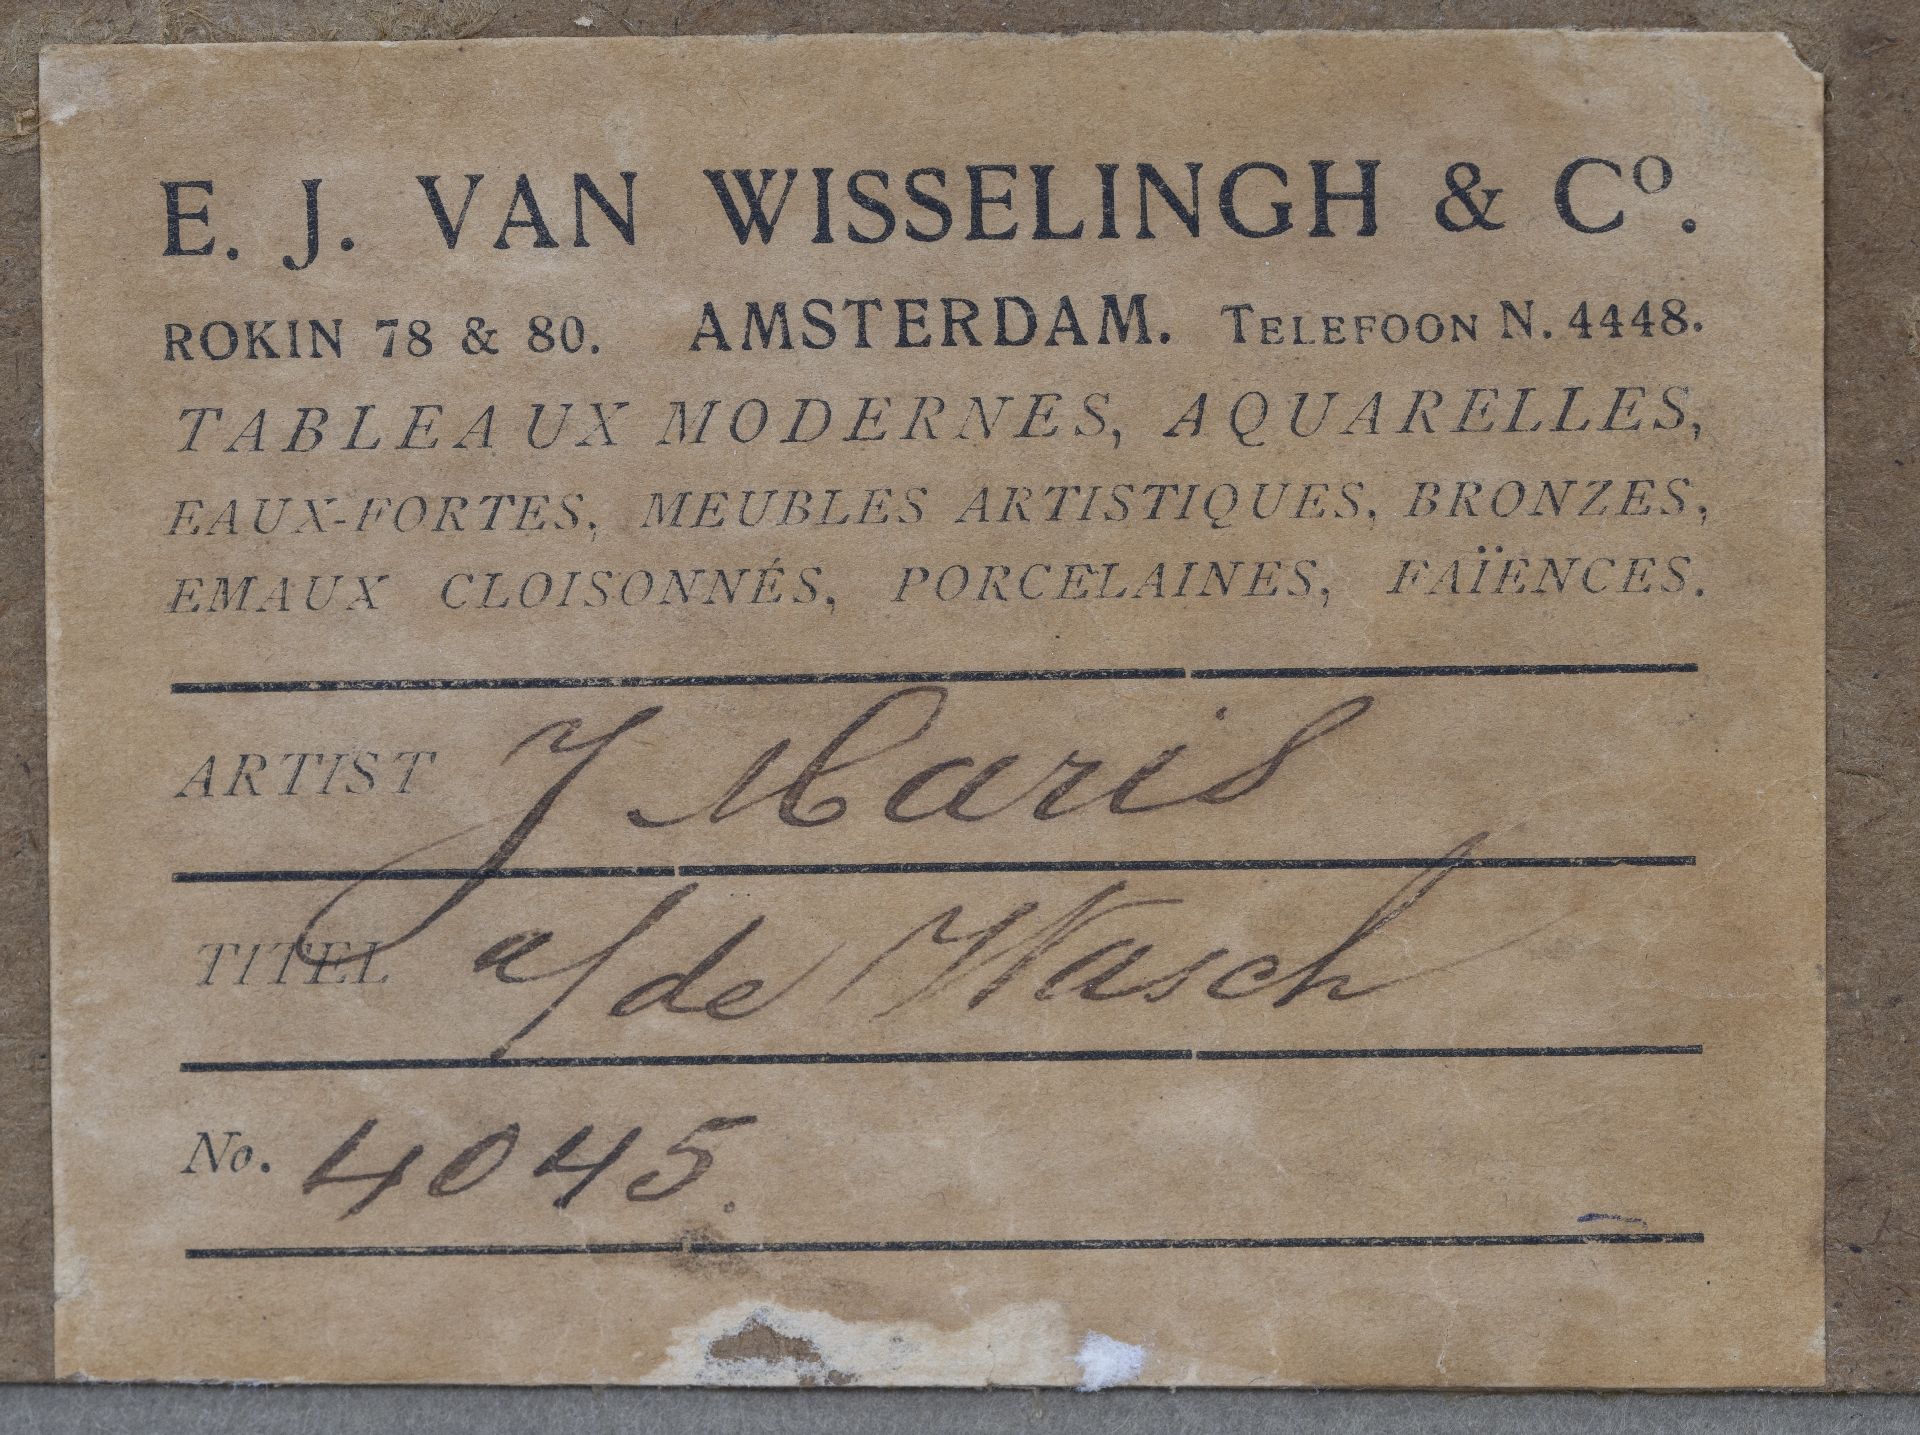 E. J. VAN WISSELINGH & Cº.
ROKIN 78 & 80. AMSTERDAM. TELEFOON N. 4448.
TABLEAUX MODERNES, AQUARELLES,
EAUX-FORTES, MEUBLES ARTISTIQUES, BRONZES,
EMAUX CLOISONNÉS, PORCELAINES, FAÏENCES.
ARTIST J Maris
TITEL a/de Wasch
No. 4045.